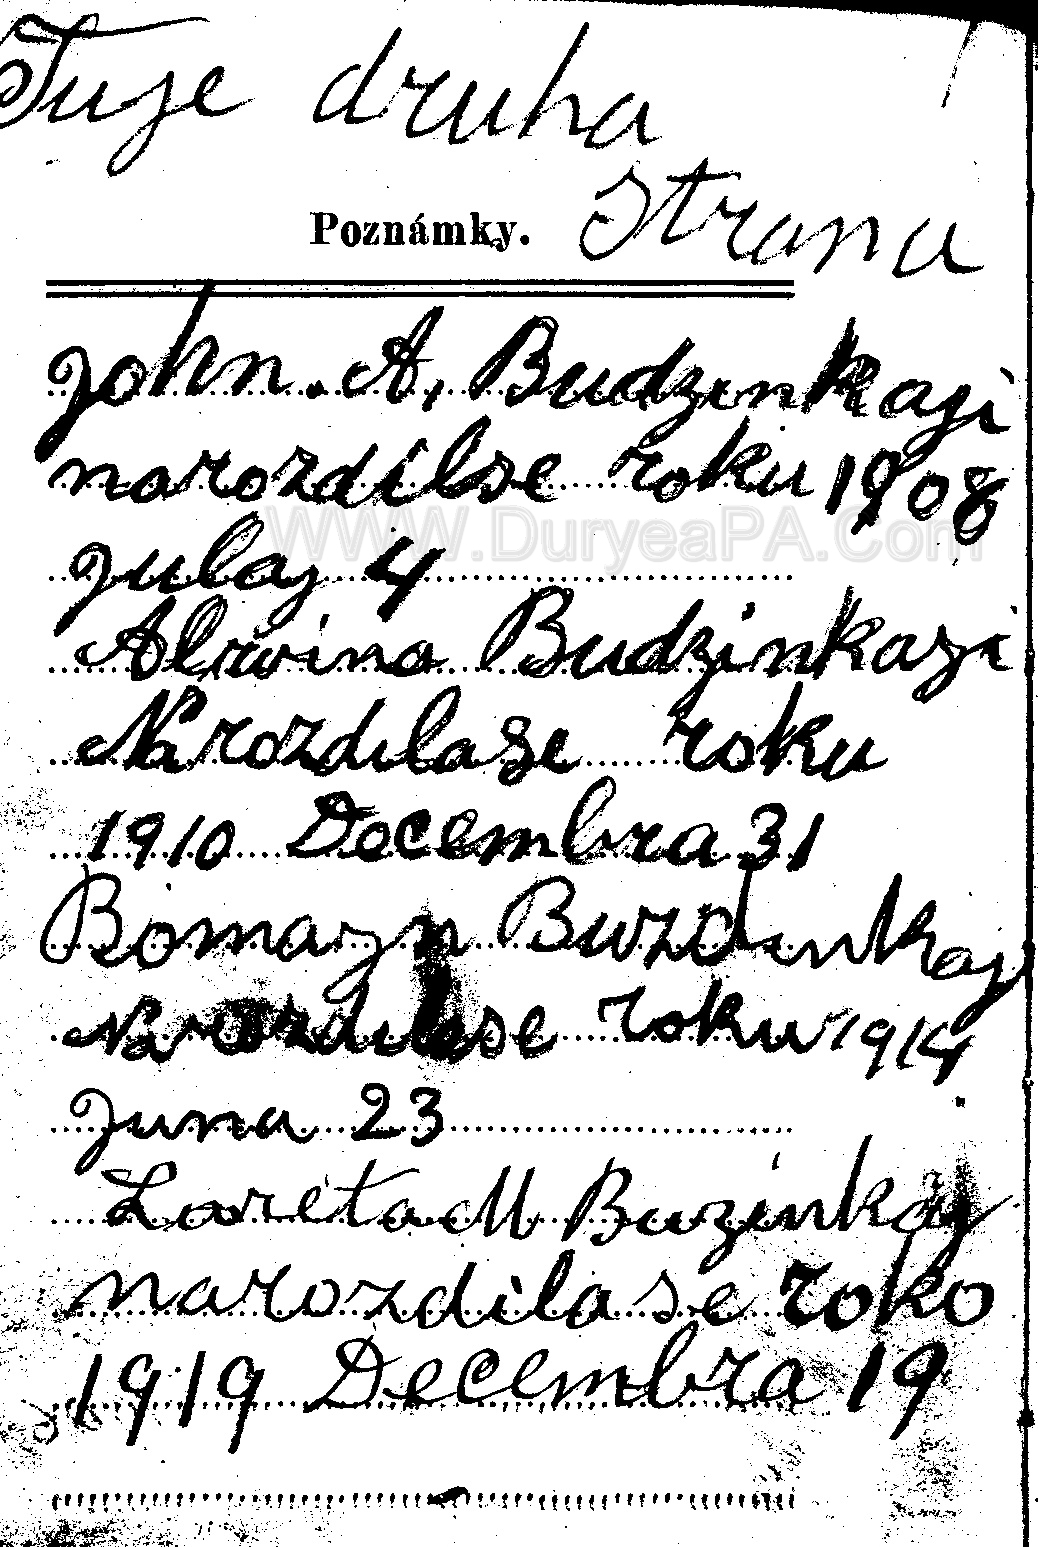 Tuje druha
strana
Poznámky.
John. A, Budzinkaji
narozdilse roku 1908
julaj 4
WWW.DuryeaPA.Com
Alwina Budzinkazi
Narozdilase roku
1910 Decembra 31
Romayn Buzdinkaj
Narozdilase roku 1914
Juna 23
Loreta M Buzinkaj
narozdila se roko
1919 Decembra 19